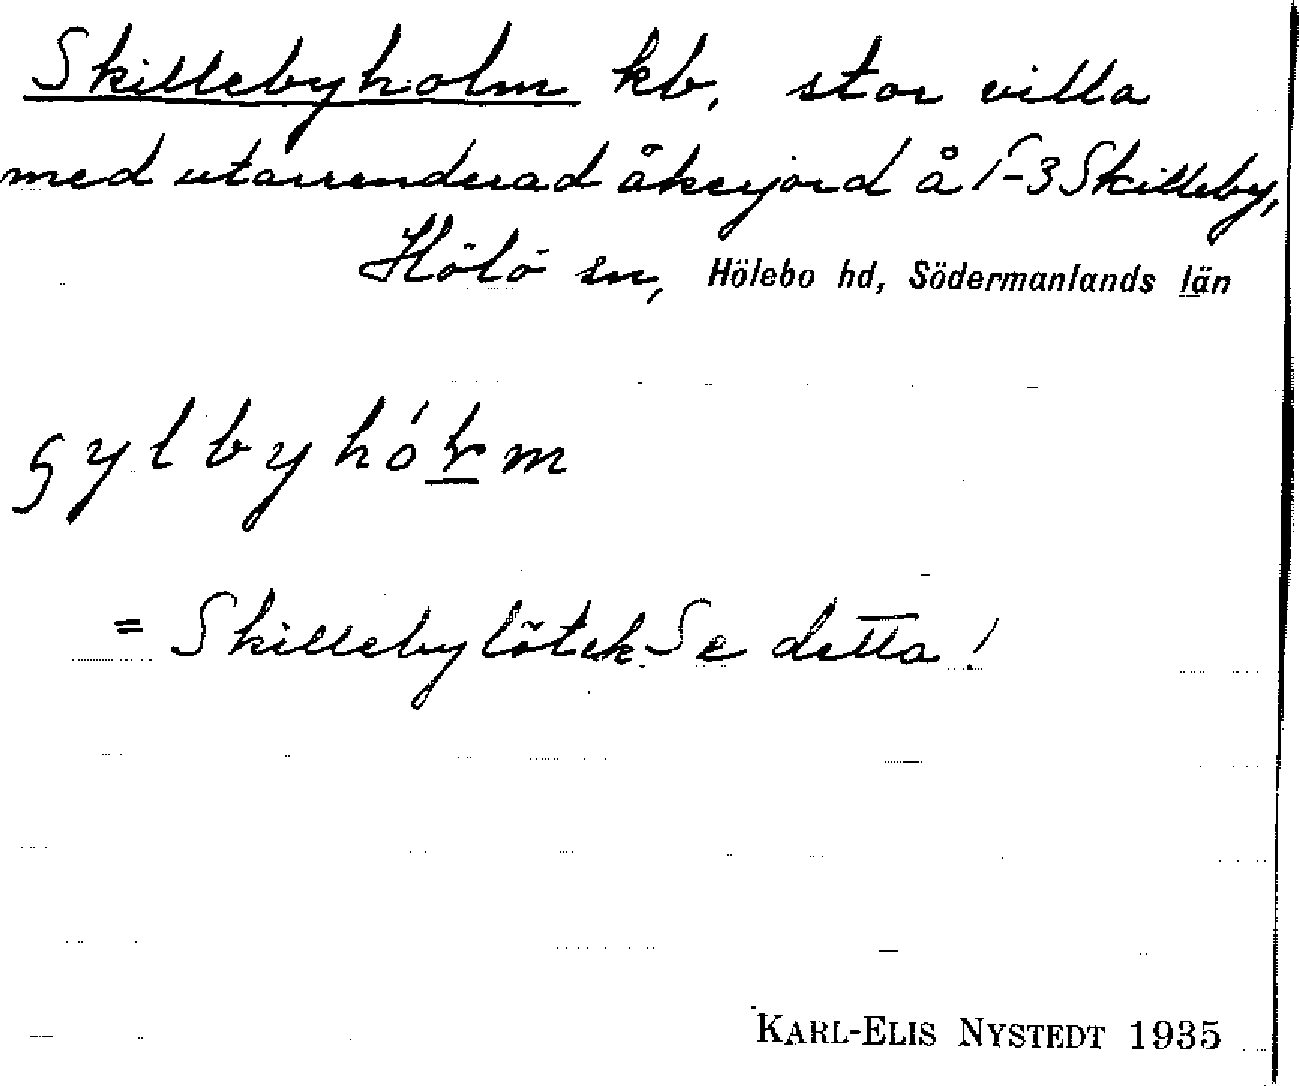 Skillebyholm kb, stor villa
med utarrenderad åkerjord å 1-3 Skilleby,
Hölö sn, Hölebo hd, Södermanlands län
= Skillebylöten. Se detta!
KARL-ELIS NYSTEDT 1935